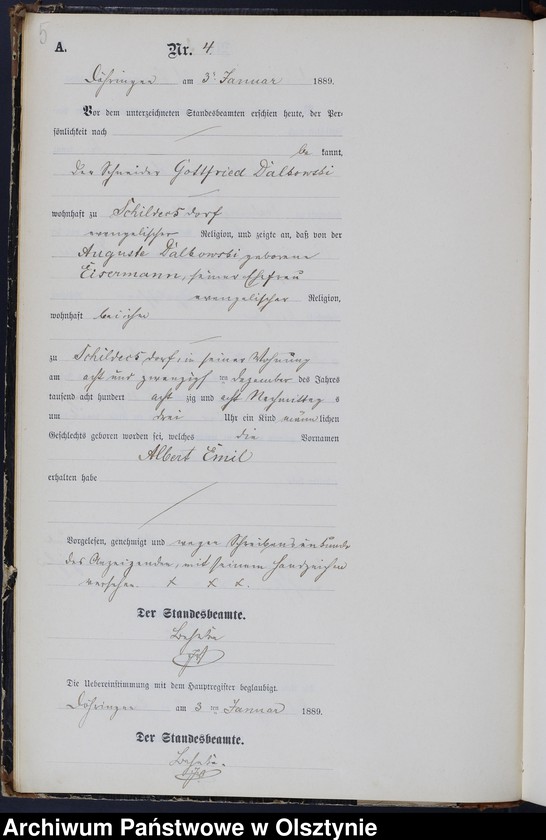 5
A. Nr. 4.
Döhringen am 3ten Januar 1889.
Vor dem unterzeichneten Standesbeamten erschien heute, der Per-
sönlichkeit nach
be kannt,
der Schneider Gottfried Dalkowski
wohnhaft zu Schildeck's dorf
evangelischer Religion, und zeigte an, daß von der
Auguste Dalkowski geborene
Eisermann, seiner Ehefrau
evangelischer Religion,
wohnhaft bei ihm
zu Schildeck's dorf in seiner Wohnung
am acht und zwanzigs ten Dezember des Jahres
tausend acht hundert acht zig und acht Nachmittags
um drei Uhr ein Kind männ lichen
Geschlechts geboren worden sei, welches die Vornamen
Albert Emil
erhalten habe
Vorgelesen, genehmigt und wegen Schreibensunkunde
des Anzeigenden, mit seinem Handzeichen
versehen. x x x.
Der Standesbeamte.
Die Uebereinstimmung mit dem Hauptregister beglaubigt.
Döhringen am 3 ten Januar 1889.
Der Standesbeamte.
Archiwum Państwowe w Olsztynie